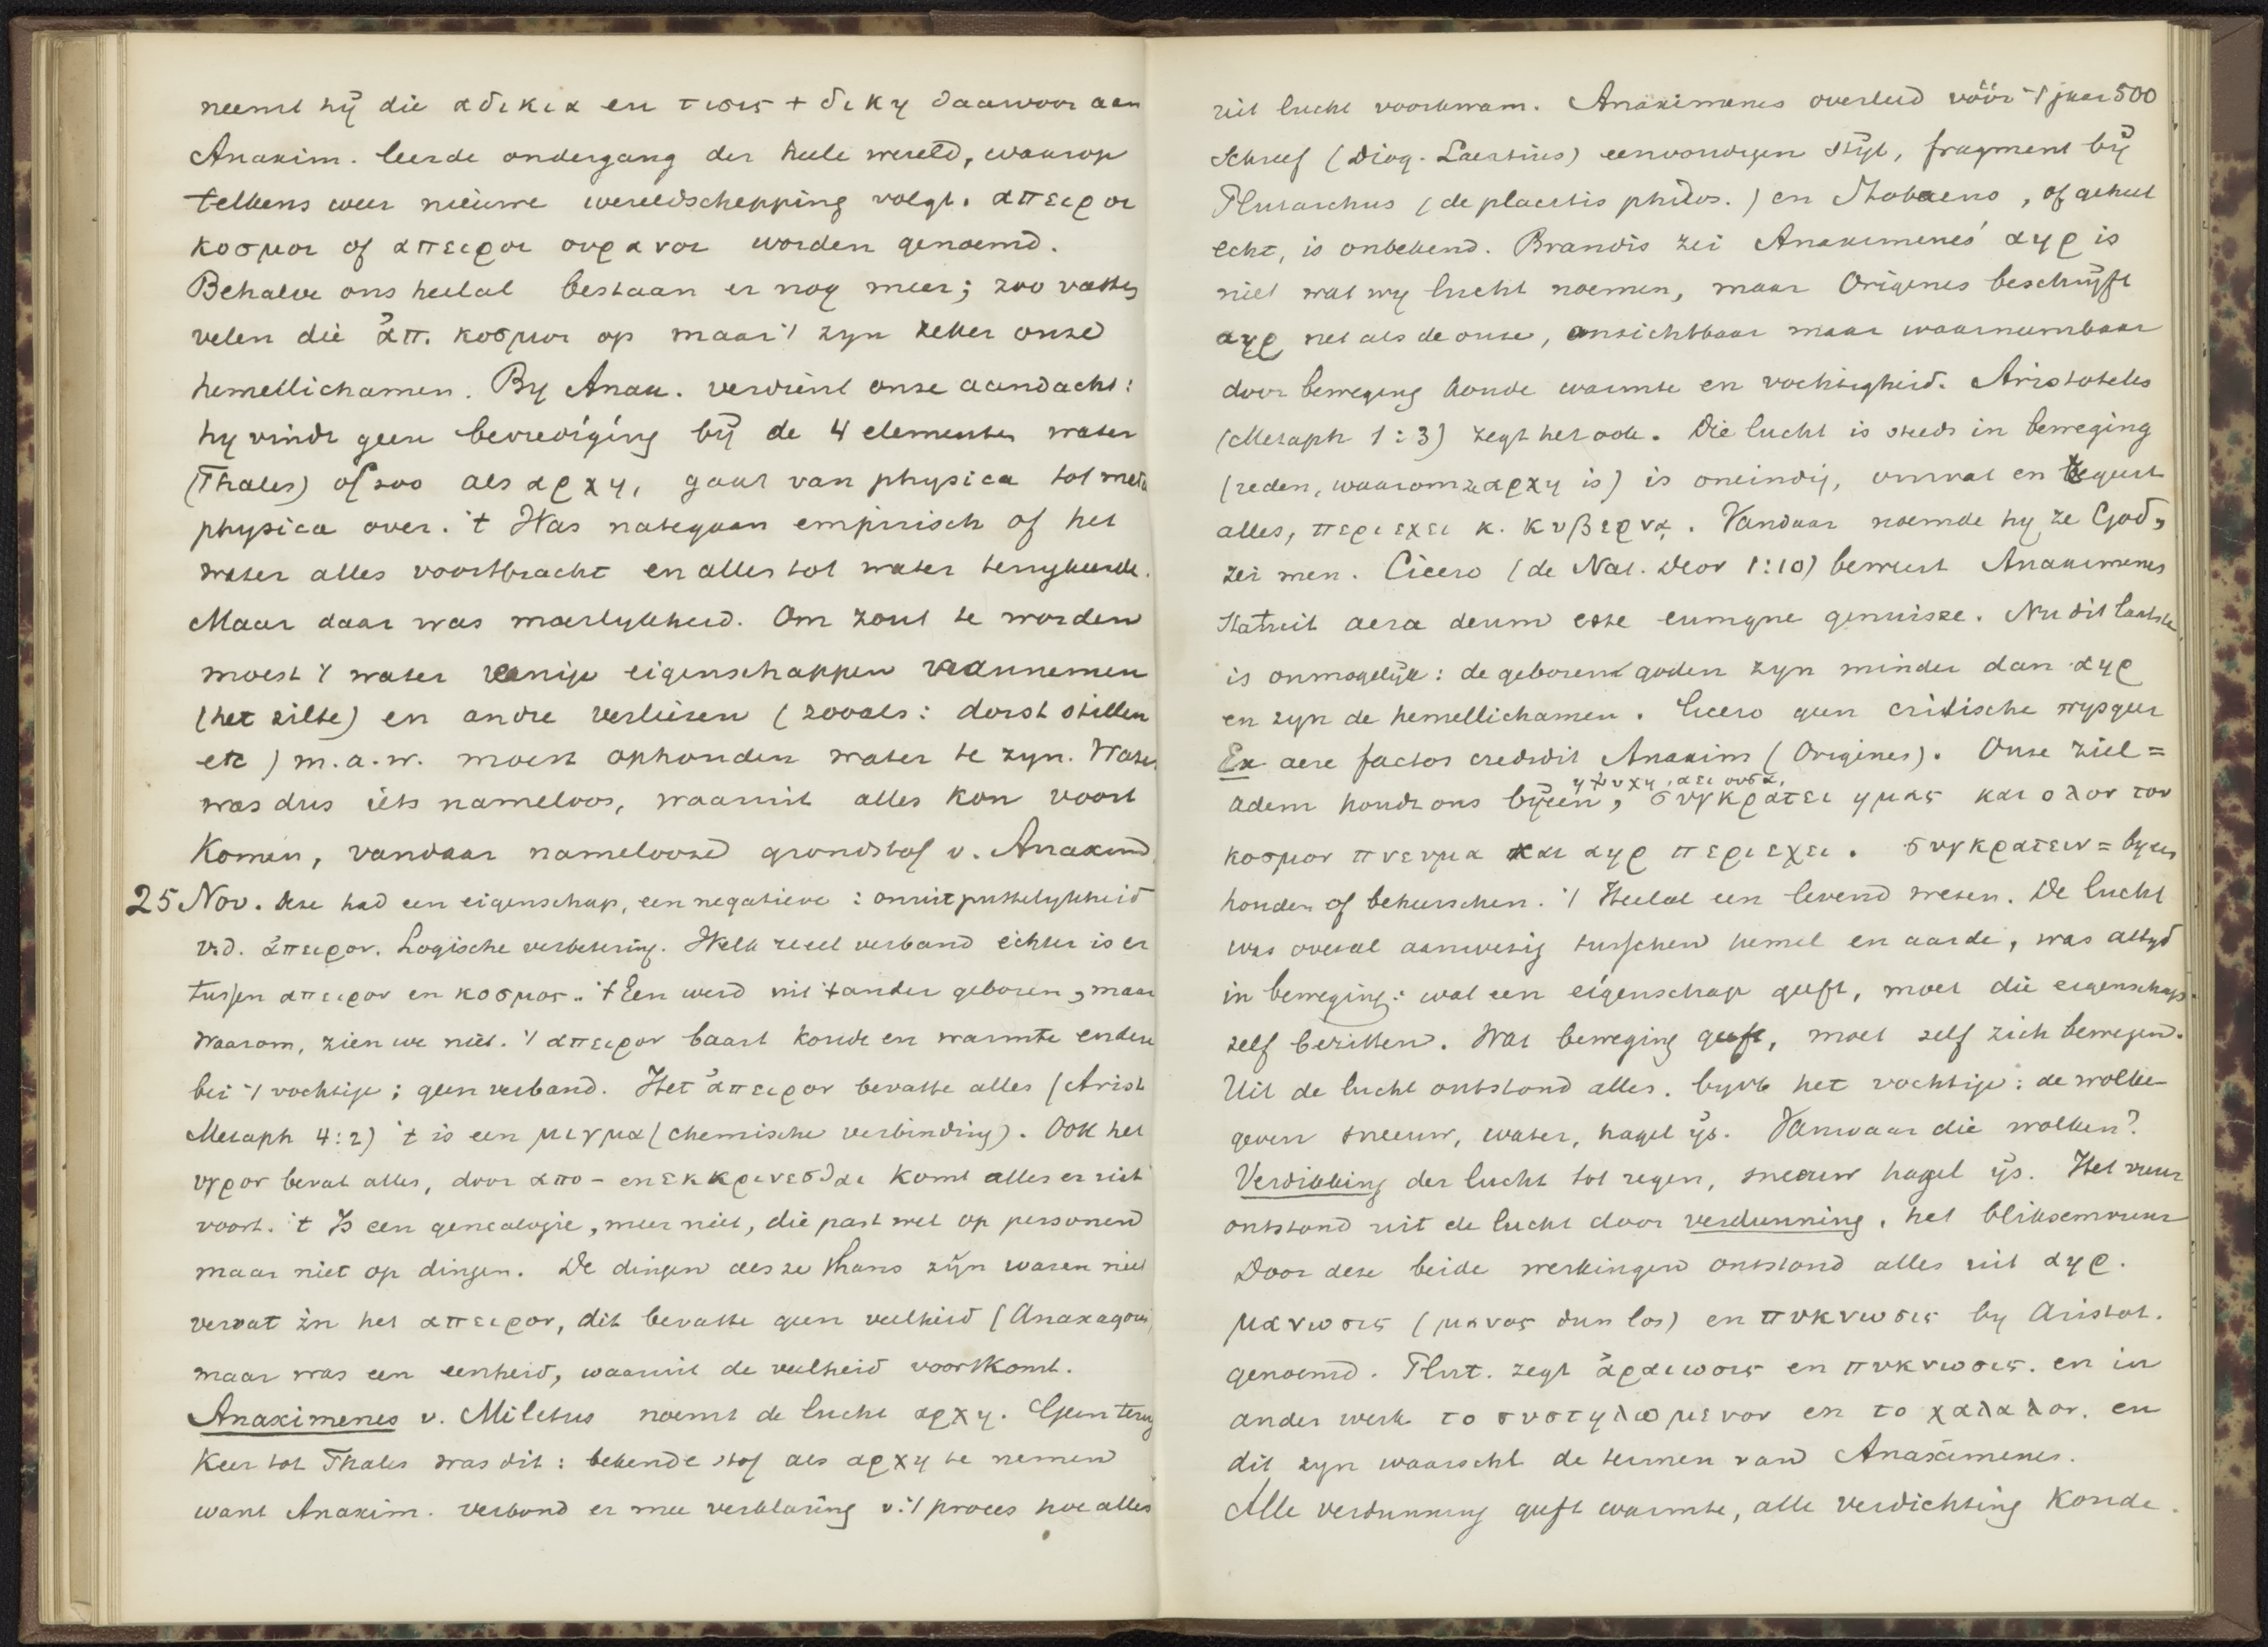 neemt hij die αδικια en τισις + δικη daarvoor aan
Anaxim. leerde ondergang der heele wereld, waarop
telkens weer nieuwe wereldschepping volgt. απειροι
κοσμοι of απειροι ουρανοι worden genoemd.
Behalve ons heelal bestaan er nog meer; zoo vatten
velen die ἀπ. κοσμοι op maar 't zyn zeker onze
hemellichamen. By Anax. verdient onze aandacht:
hy vindt geen bevrediging bij de 4 elementen water
(Thales) of zoo als αρχη, gaat van physica tot meta
physica over. 't Was nategaan empirisch of het
water alles voortbracht en alles tot water terugkeerde.
Maar daar was moeilykheid. Om zout te worden
moest 't water eenige eigenschappen aannemen
(het zilte) en andre verliezen (zooals: dorst stillen
etc) m.a.w. moest ophouden water te zyn. Water
was dus iets nameloos, waaruit alles kon voort
komen, vandaar nameloose grondstof v. Anaximd.
25 Nov. Deze had een eigenschap, een negatieve: onuitputtelykheid
v.d. ἀπειρον. Logische verbetering. Welk reeel verband echter is er
tussen απειρον en κοσμος.. 't Een werd uit 't ander geboren, maar
waarom, zien we niet. 't απειρον baart koude en warmte en deze
bei 't vochtige; geen verband. Het ἀπειρον bevatte alles (Arist
Metaph 4:2) 't is een μιγμα (chemische verbinding). Ook het
υγρον bevat alles, door απο- en εκκρινεσθαι komt alles er uit
voort. 't Is een genealogie, meer niet, die past wel op personen
maar niet op dingen. De dingen als ze thans zijn waren niet
vervat in het απειρον, dit bevatte geen veelheid (Anaxagoras)
maar was een eenheid, waaruit de veelheid voortkomt.
Anaximenes v. Miletus noemt de lucht αρχη. Geen terug
keer tot Thales was dit: bekende stof als αρχη te nemen
want Anaxim. verbond er mee verklaring v. 't proces hoe alles
uit lucht voortkwam. Anaximenes overleed vóór 't jaar 500
Schreef (Diog. Laertius) eenvoudigen stijl, fragment bij
Plutarchus (de placitis philos.) en Stobaeus, of geheel
echt, is onbekend. Brandis zei Anaximenes' αηρ is
niet wat wy lucht noemen, maar Origenes beschrijft
αηρ net als de onze, onzichtbaar maar waarneembaar
door beweging koude warmte en vochtigheid. Aristoteles
(Metaph 1:3) zegt het ook. Die lucht is steeds in beweging
(reden, waarom ze αρχη is) is oneindig, omvat en regeert
alles, περιεχει κ. κυβερνᾳ. Vandaar noemde hy ze God,
zei men. Cicero (de Nat. Deor 1:10) beweert Anaximenes
statuit aera deum esse eumque genuisse. Nu dit laatste
is onmogelijk: de geboren goden zyn minder dan αηρ
en zyn de hemellichamen. Cicero geen critische wysgeer
Ex aere factos credidit Anaxim (Origines). Onze ziel =
η ψυχη, αει ουσα,
adem houdt ons bijeen, συγκρατει ημας και ολον τον
κοσμον πνευμα και αηρ περιεχει. συγκρατειν = byeen
houden of beheerschen. 't Heelal een levend wezen. De lucht
was overal aanwezig tusschen hemel en aarde, was altyd
in beweging: wat een eigenschap geeft, moet die eigenschap
zelf bezitten. Wat beweging geeft, moet zelf zich bewegen.
Uit de lucht ontstond alles. byvb het vochtige: de wolken
geven sneeuw, water, hagel ijs. Vanwaar die wolken?
Verdikking der lucht tot regen, sneeuw hagel ijs. Het vuur
ontstond uit de lucht door verdunning, het bliksemvuur
Door deze beide werkingen ontstond alles uit αηρ.
μανωσις (μανος dun los) en πυκνωσις by Aristot.
genoemd. Plut. zegt ἀραιωσις en πυκνωσις. en in
ander werk το συστηλωμενον en το χαλαλον. en
dit zyn waarschl de termen van Anaximenes.
Alle verdunning geeft warmte, alle verdichting koude.